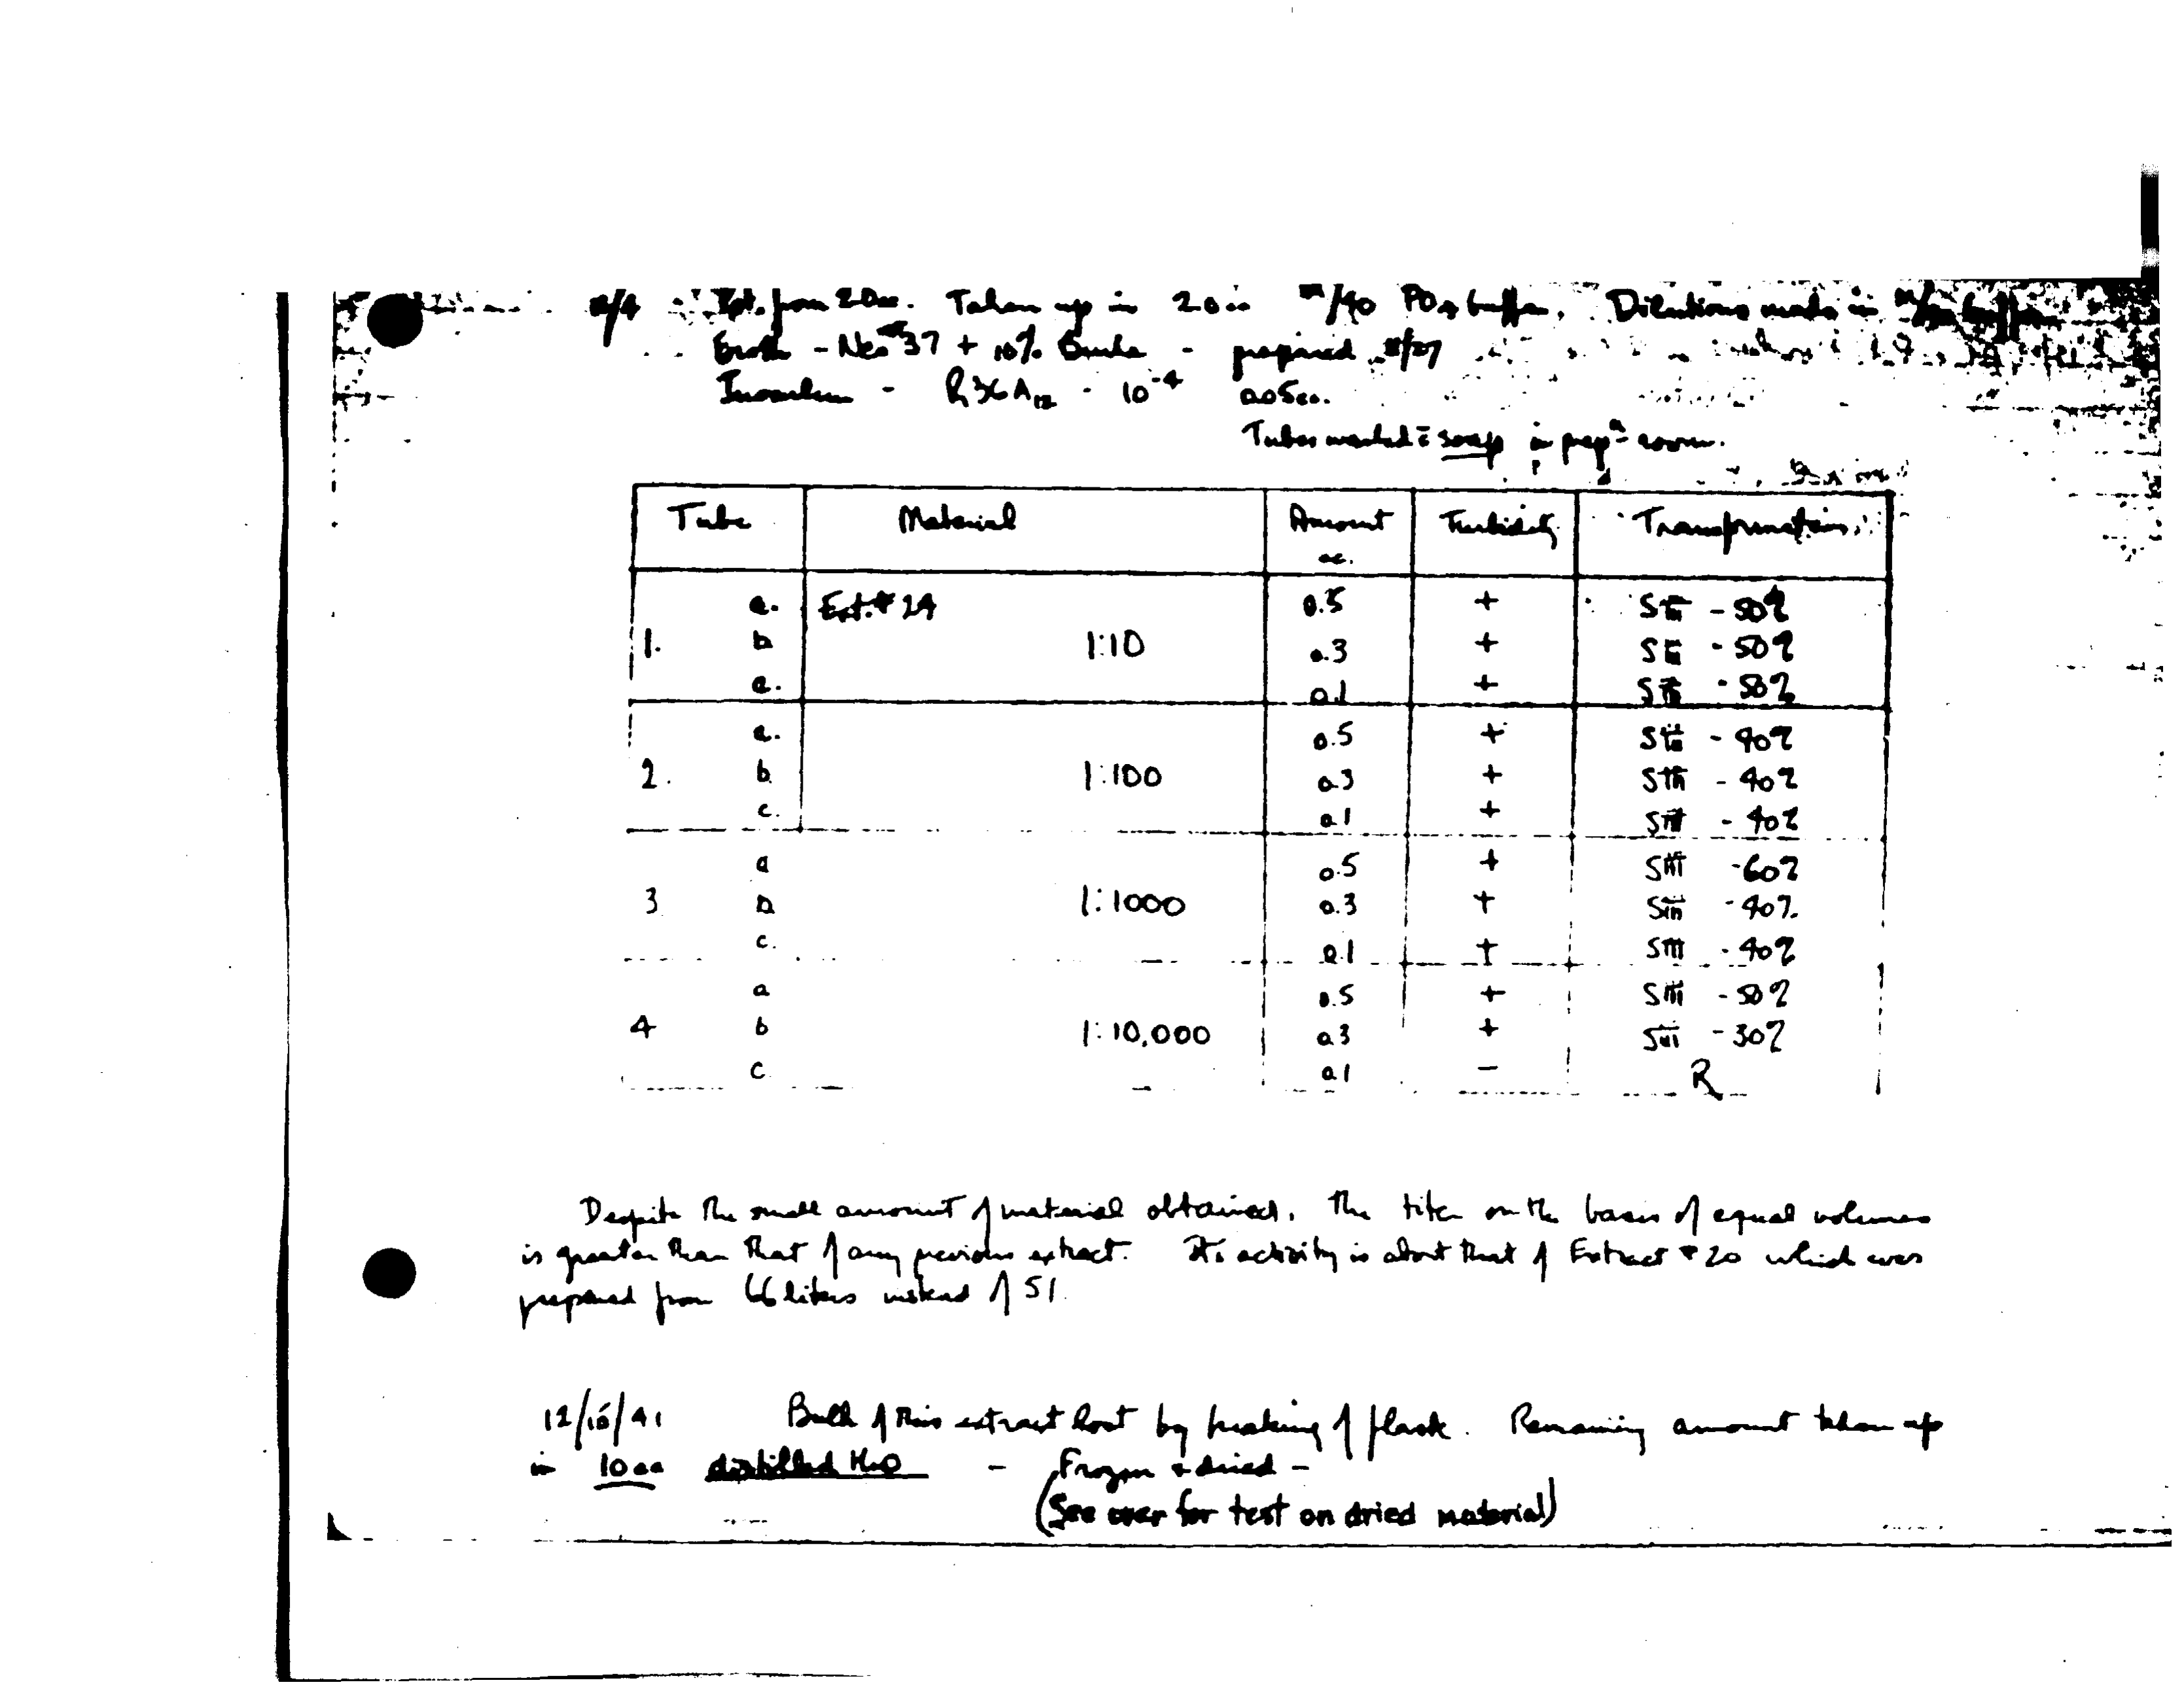 Ppt. from 2 Dec. Taken up in 20 cc M/40 PO4 buffer. Dilutions made in
Broth - Neo #37 + 10% - prepared 11/27
Inoculum - R36A12 - 10-4 0.05 cc.
Tubes marked soap in prepn room.
Tube Material Amount cc. Turbidity Transformation
a. Ext. # 24 0.5 + SIII - 50%
1. b 1:10 0.3 + SIII - 50%
c. 0.1 + SIII - 50%
a. 0.5 + SIII - 40%
2. b. 1:100 0.3 + SIII - 40%
c. 0.1 + SIII - 40%
a 0.5 + SIII - 60%
3 b 1:1000 0.3 + SIII - 40%
c. 0.1 + SIII - 40%
a 0.5 + SIII - 50%
4 b 1:10,000 0.3 + SIII - 30%
c 0.1 - R
Despite the small amount of material obtained, the titer on the basis of equal volumes
is greater than that of any previous extract. Its activity is about that of Extract #20 which was
prepared from 66 liters instead of 51.
12/16/41 Bulk of this extract lost by breaking of flask. Remaining amount taken up
in 10 cc distilled H2O - Frozen & dried -
(See over for test on dried material)